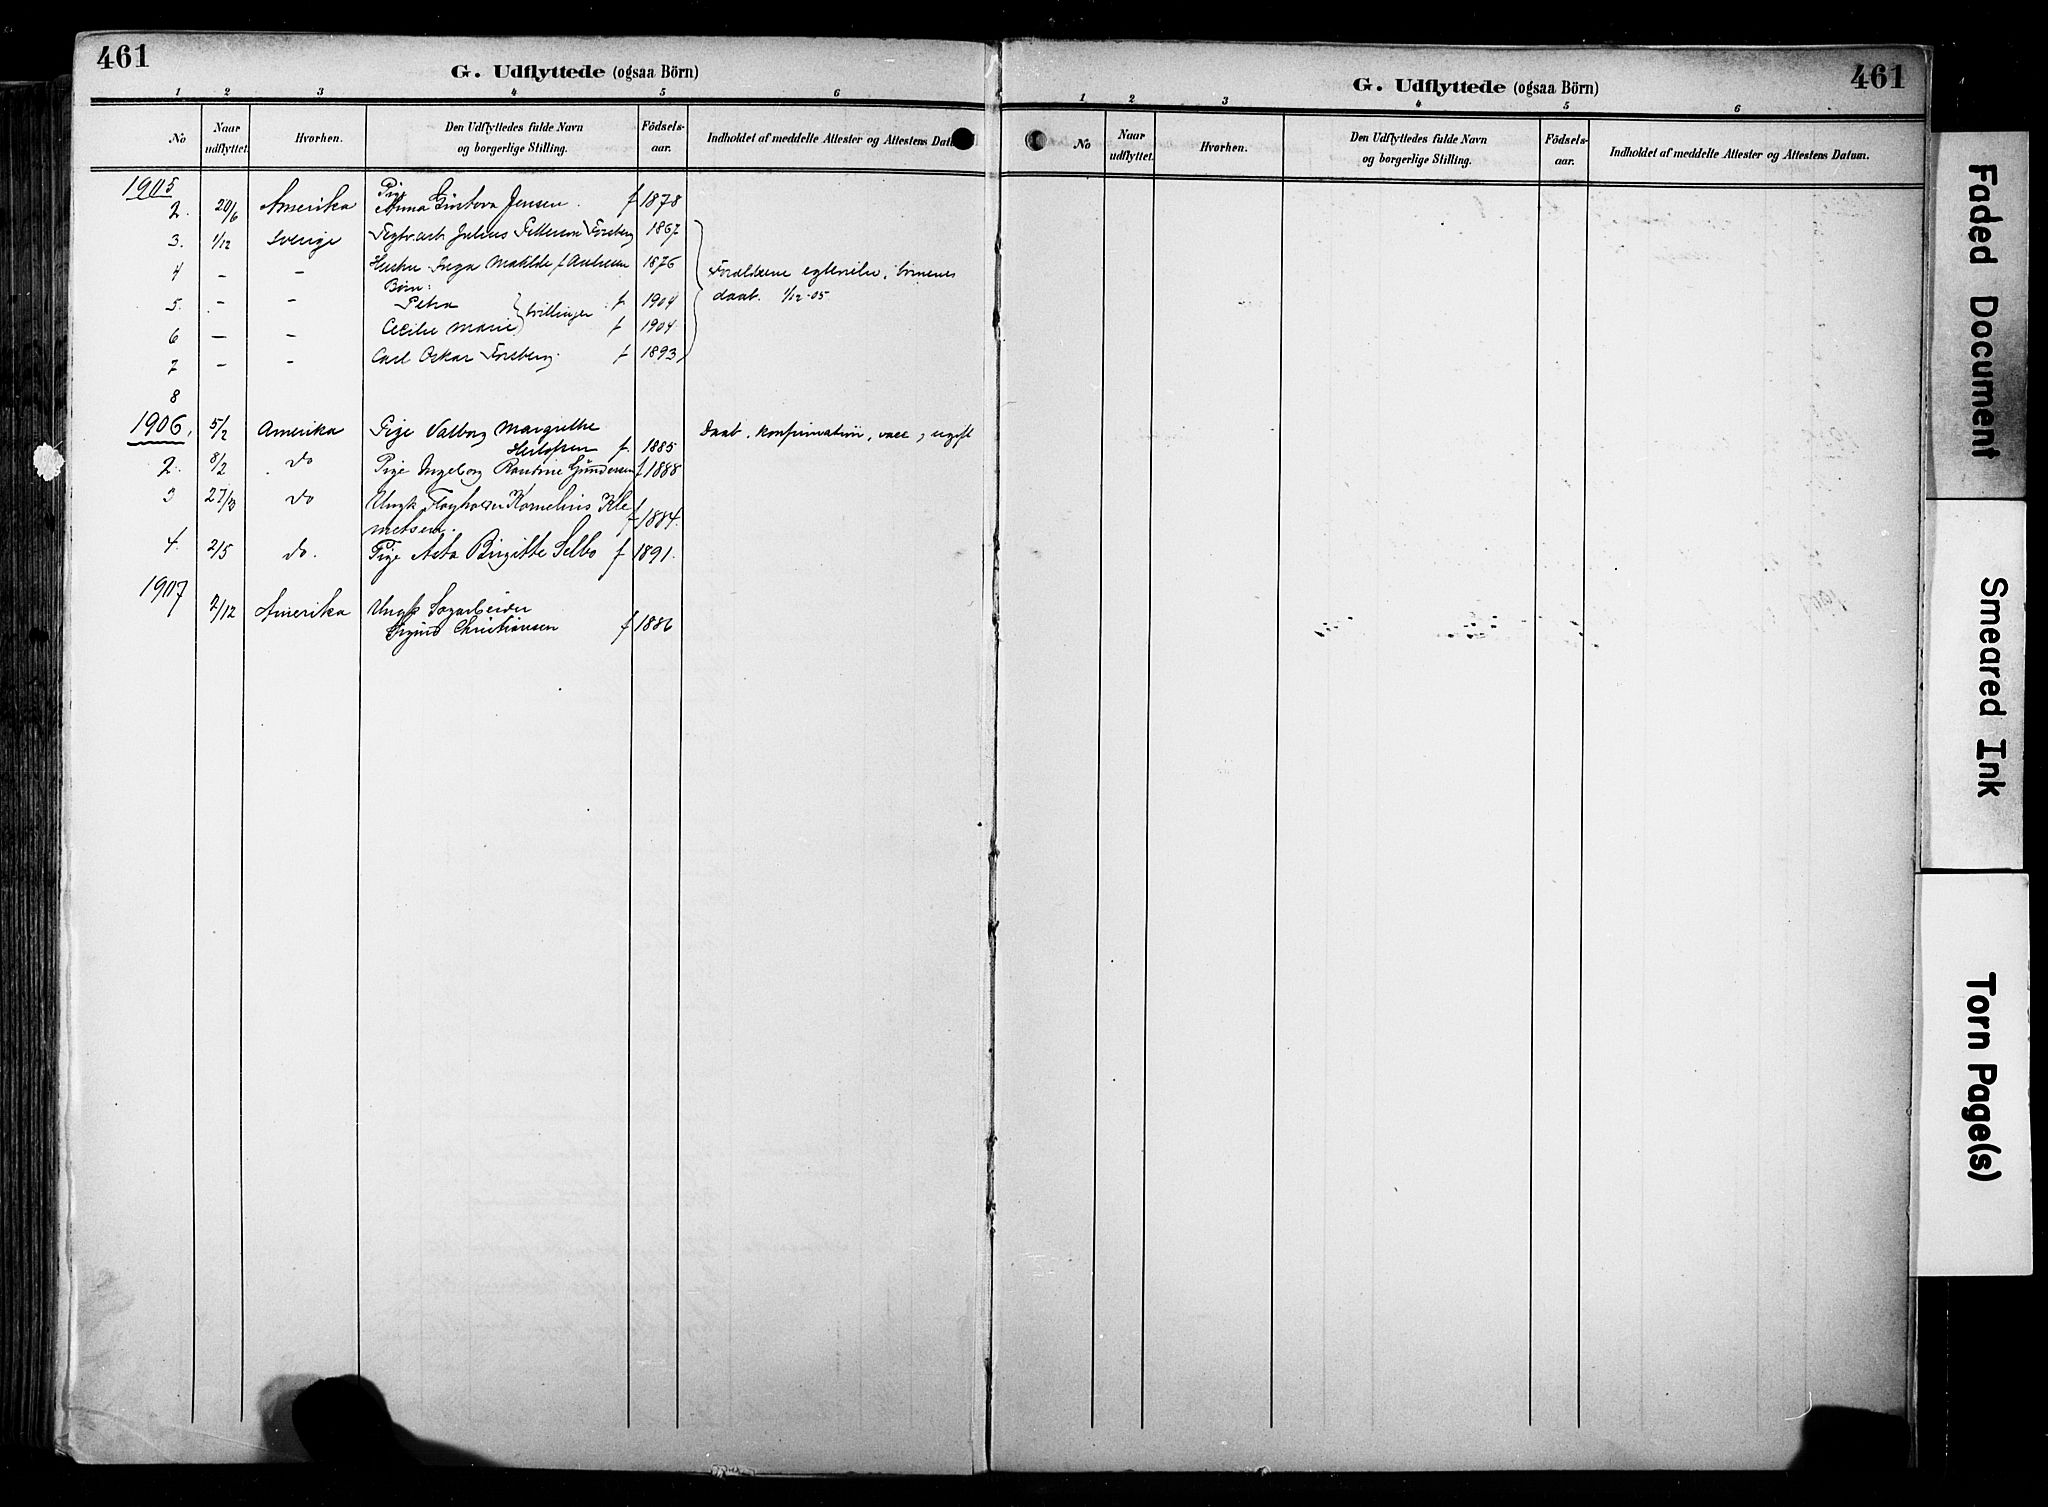 461
G. Udflyttede (ogsaa Börn)
1 2 3 4 5 6
No
Naar udflyttet.
Hvorhen.
Den Udflyttedes fulde Navn og borgerlige Stilling.
Födsels-aar.
Indholdet af meddelte Attester og Attestens Dat
1905
Pige
2. 20/6 Amerika Anna Gustava Jensen. f 1878
3. 1/12 Sverige Julius Petterson Forsberg 1867
4 – – Hustru Inga Matilde f. Andresen 1876 Forældrene egtevielse, börnenes
Börn:
5. - – Petra tvillinger f. 1904 daab. 1/12-05
6 — – Cecilie Marie f 1904
7 – – Carl Oskar Forsberg. f 1893
8
1906. 5/2 Amerika Pige Valborg Margrethe Daab, konfirmation, vacc, ugift
f. 1885
2. 8/2 do Pige Ingeborg Gundersen f 1888
3 do Ungk Kornelius Kle
metsen. f 1884.
4. 2/5 do. Pige Asta Birgitte Selbo f 1891.
1907
2/12 Amerika Ungk Sagarbeider
Sigurd Christiansen f 1886
G. Udflyttede (ogsaa Börn)
461
1 2 3 4 5 6
No
Naar udflyttet.
Hvorhen.
Den Udflyttedes fulde Navn og borgerlige Stilling.
Födsels-aar.
Indholdet af meddelte Attester og Attestens Datum.
Faded Document
Smeared Ink
Torn Page(s)